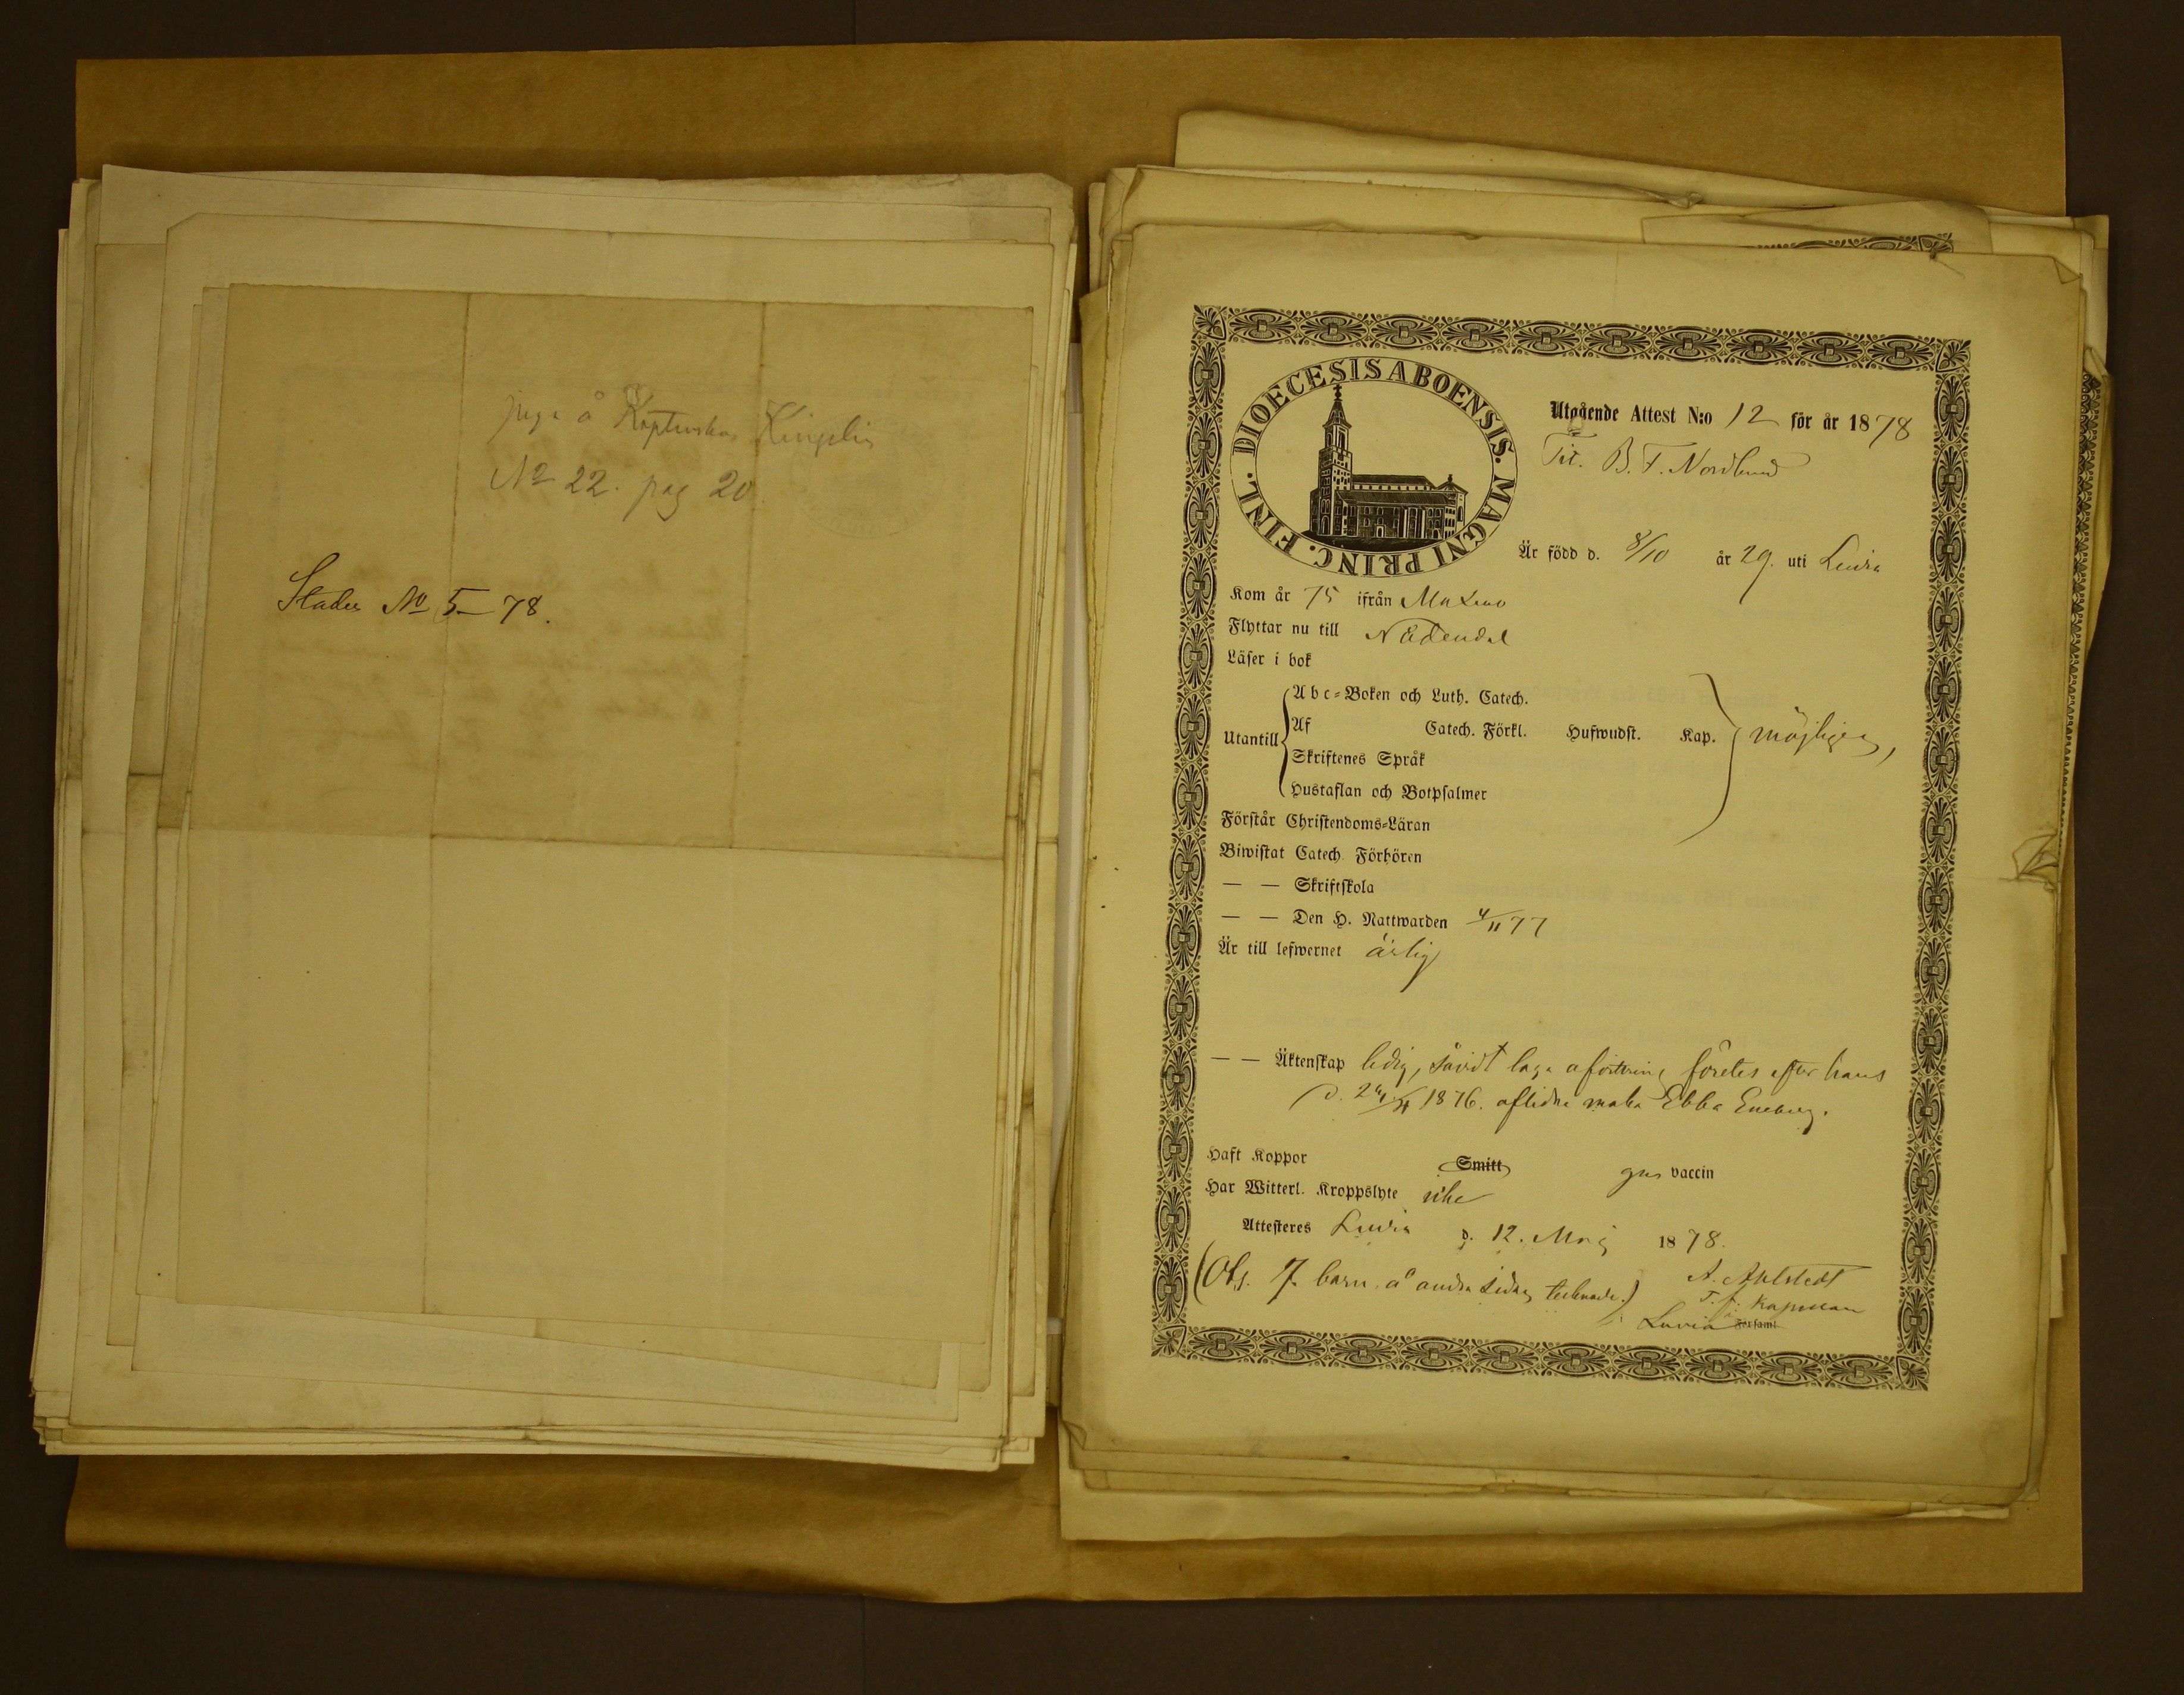 piga å Kaptenskan Kingelin
No 22. pag 20.
Staden No 5 - 78.
DIOECESIS ABOENSIS. MAGNI PRINC. FINL.
Utgående Attest N:o 12 för år 1878
Tit. B. F. Nordlund
Är född d. 8/10 år 29. uti Luvia
Kom år 75 ifrån
Flyttar nu till Nådendal
Läser i bok
Utantill
Abc-Boken och Luth. Catech.
Af Catech. Förkl. Hufwudst. Kap. möjligen,
Skriftenes Språk
Hustaflan och Botpsalmer
Förstår Christendoms-Läran
Biwistat Catech. Förhören
— — Skriftskola
— — Den H. Nattwarden 4/11 77
Är till lefwernet ärlig
— — Äktenskap ledig, såvidt laga afvittring företes efter hans
d. 1876. aflidna maka Ebba Eneberg.
Haft Koppor Smitt gns vaccin
Har Witterl. Kroppslyte icke
Attesteres Luvia d. 12. Maj 1878.
(Obs. 7 barn å andra sidan tecknade.) A. Ahlstedt
T. f. Kapellan
Luvia Församl